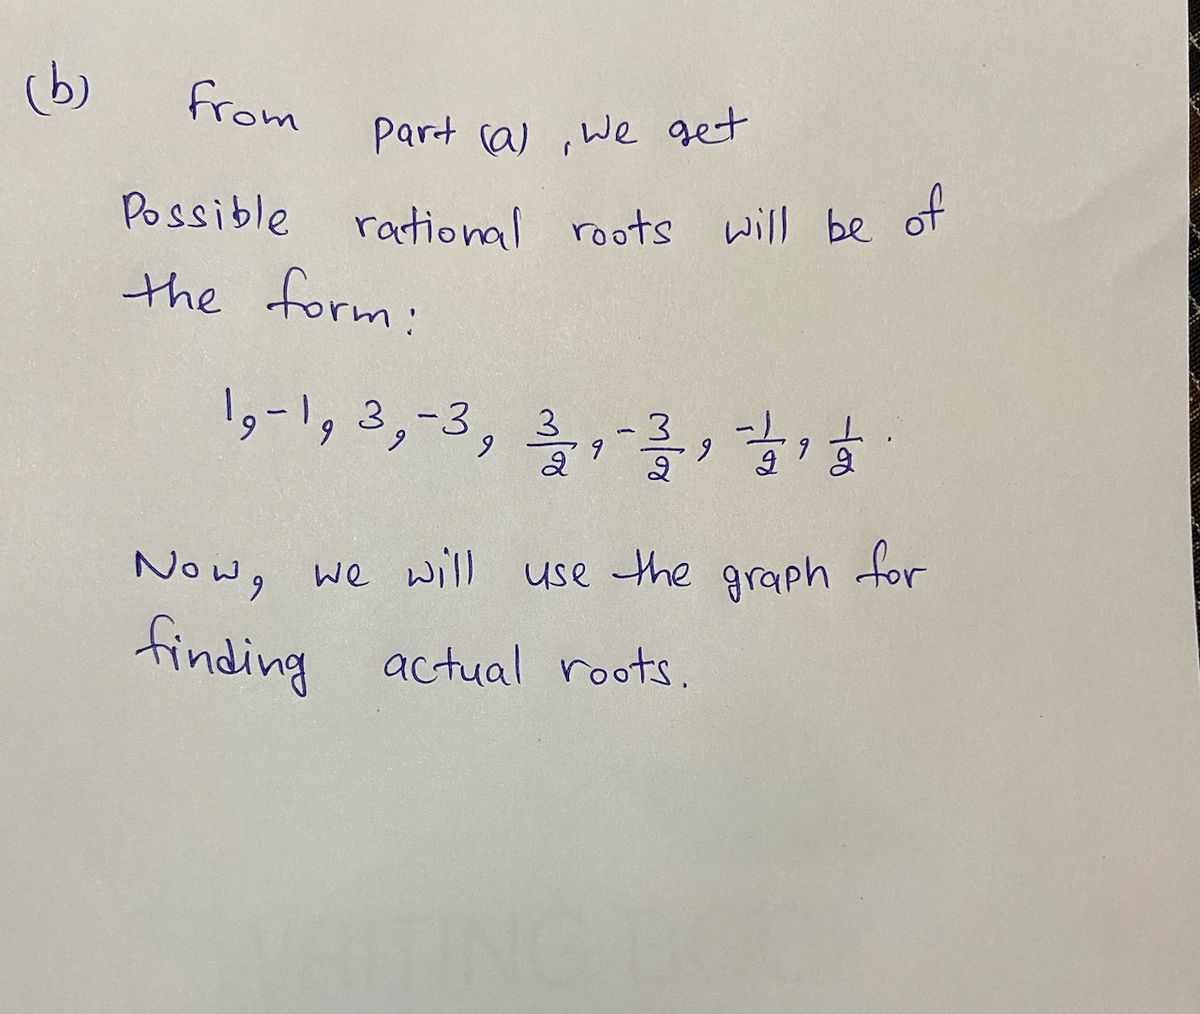 (b) From part (a), we get
Possible rational roots will be of
the form:
1, -1, 3, -3, 3/2, -3/2, -1/2, 1/2.
Now, we will use the graph for
finding actual roots.